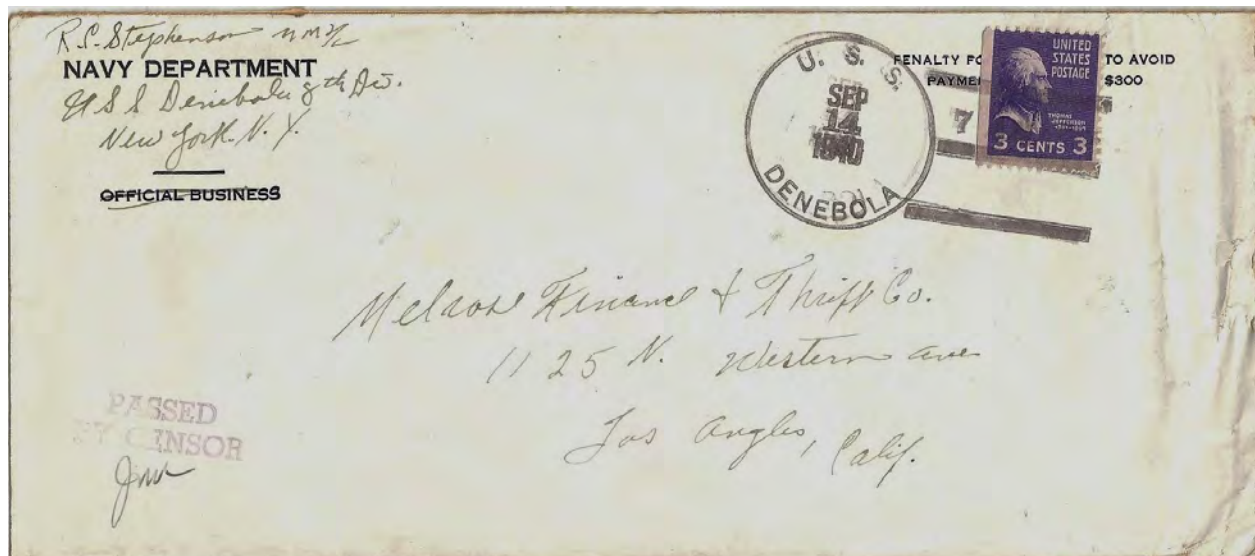 R.S. Stephenson
NAVY DEPARTMENT
USS Denebola 8th Div.
New York. N.Y.
OFFICIAL BUSINESS
U. S. S.
SEP
14
1940
DENEBOLA
PENALTY FO TO AVOID
PAYMEN $300
7
UNITED
STATES
POSTAGE
THOMAS
JEFFERSON
3 CENTS 3
Melrose Finance & Thrift Co.
1125 N. Western ave
Los Angles, Calif.
PASSED
BY CENSOR